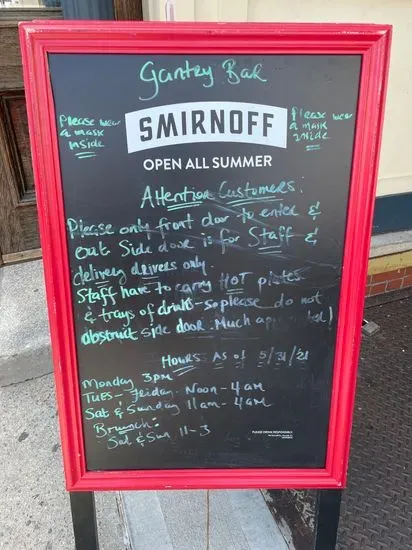 Gantry Bar
Please wear
a mask
inside
SMIRNOFF
Please wear
a mask
inside
OPEN ALL SUMMER
Attention Customers:
Please only front door to enter &
out. Side door is for Staff &
delivery drivers only.
Staff have to carry HOT plates
& trays of drinks - so please do not
obstruct side door. Much !
Hours: As of 5/31/21
Monday 3pm
TUES - Friday. Noon - 4am
Sat & Sunday 11am - 4am
Brunch:
Sat & Sun 11-3
PLEASE DRINK RESPONSIBLY.